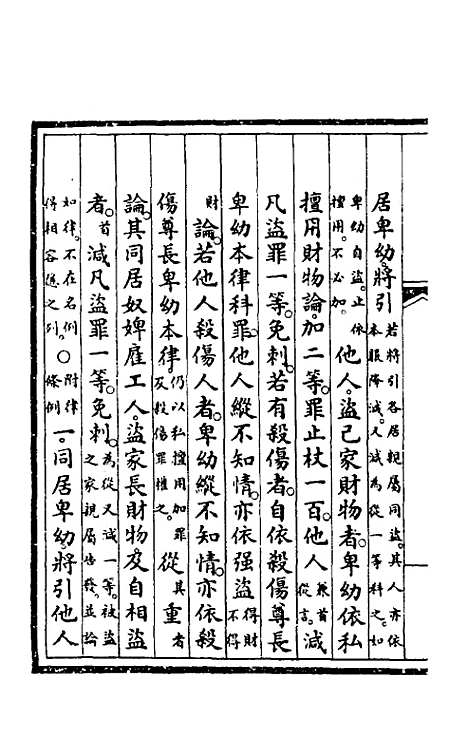 居卑幼。將引若將引各居親屬同盜。其人亦依本服降減。又減為從一等科之。如
卑幼自盜。止依擅用。不必加。他人。盜己家財物者。卑幼依私
擅用財物論。加二等。罪止杖一百。他人兼首從言。減
凡盜罪一等。免刺。若有殺傷者。自依殺傷尊長
卑幼本律科罪。他人縱不知情。亦依強盜得財不得
財論。若他人殺傷人者。卑幼縱不知情。亦依殺
傷尊長卑幼本律。仍以私擅用加罪及殺傷罪權之。從其重者
論。其同居奴婢雇工人。盜家長財物及自相盜
者。首減凡盜罪一等。免刺。為從又減一等。被盜之家親屬告發。並論
如律。不在名例得相容隱之列。○附律條例一。同居卑幼。將引他人